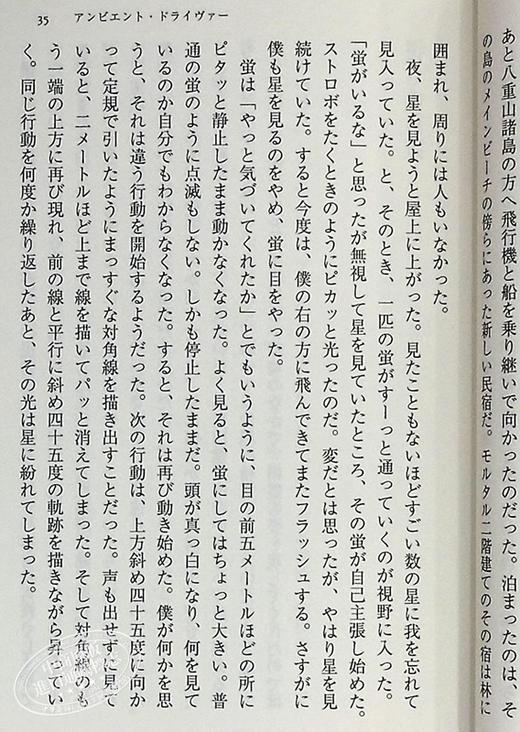 35　アンビエント・ドライヴァー
あと八重山諸島の方へ飛行機と船を乗り継いで向かったのだった。泊まったのは、そ
の島のメインビーチの傍らにあった新しい民宿だ。モルタル二階建てのその宿は林に
囲まれ、周りには人もいなかった。
　夜、星を見ようと屋上に上がった。見たこともないほどすごい数の星に我を忘れて
見入っていた。と、そのとき、一匹の蛍がすーっと通っていくのが視野に入った。
「蛍がいるな」と思ったが無視して星を見ていたところ、その蛍が自己主張し始めた。
ストロボをたくときのようにピカッと光ったのだ。変だとは思ったが、やはり星を見
続けていた。すると今度は、僕の右の方に飛んできてまたフラッシュする。さすがに
僕も星を見るのをやめ、蛍に目をやった。
　蛍は「やっと気づいてくれたか」とでもいうように、目の前五メートルほどの所に
ピタッと静止したまま動かなくなった。よく見ると、蛍にしてはちょっと大きい。普
通の蛍のように点滅もしない。しかも停止したままだ。頭が真っ白になり、何を見て
いるのか自分でもわからなくなった。すると、それは再び動き始めた。僕が何かを思
うと、それは違う行動を開始するようだった。次の行動は、上方斜め四十五度に向か
って定規で引いたようにまっすぐな対角線を描き出すことだった。声も出せずに見て
いると、二メートルほど上まで線を描いてパッと消えてしまった。そして対角線のも
う一端の上方に再び現れ、前の線と平行に斜め四十五度の軌跡を描きながら昇ってい
く。同じ行動を何度か繰り返したあと、その光は星に紛れてしまった。